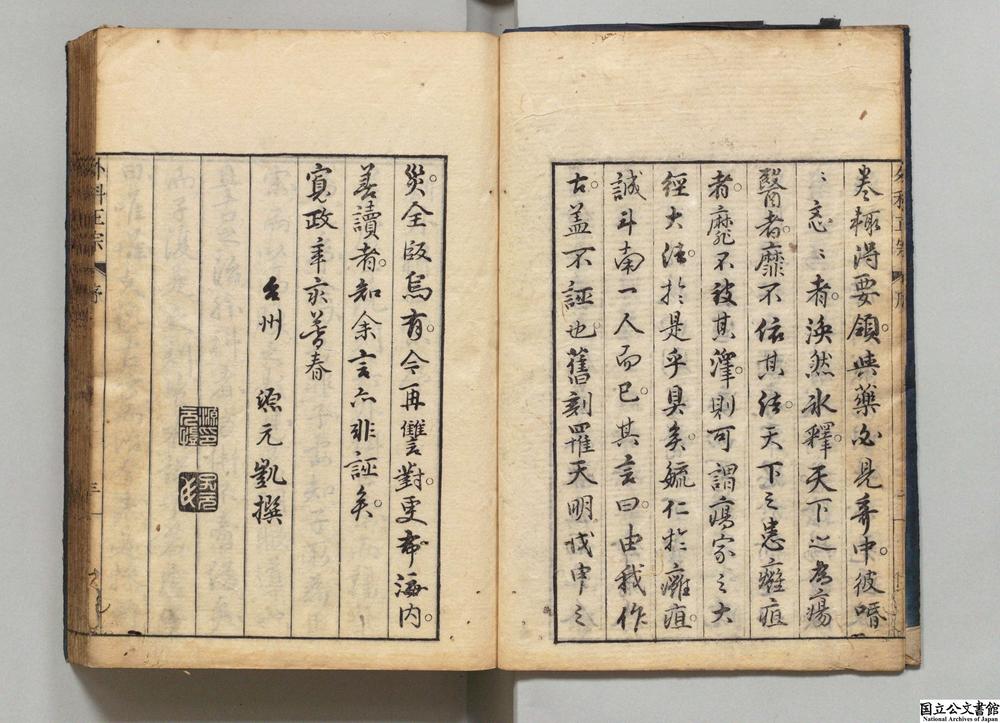 卷輙得要領與藥必見奔中彼惛
〻忞〻者渙然氷釋天下之為瘍
醫者靡不依其法天下之患癰疽
者靡不被其澤則可謂瘍家之大
經大法於是乎具矣毓仁於癰疽
誠斗南一人而已其言曰由我作
古蓋不誣也舊刻罹天明戊申之
災全版烏有今再讐對更布海内
善讀者知余言亦非誣矣
寬政辛亥暮春
台州 源元凱撰
外科正宗 序 三
国立公文書館
National Archives of Japan